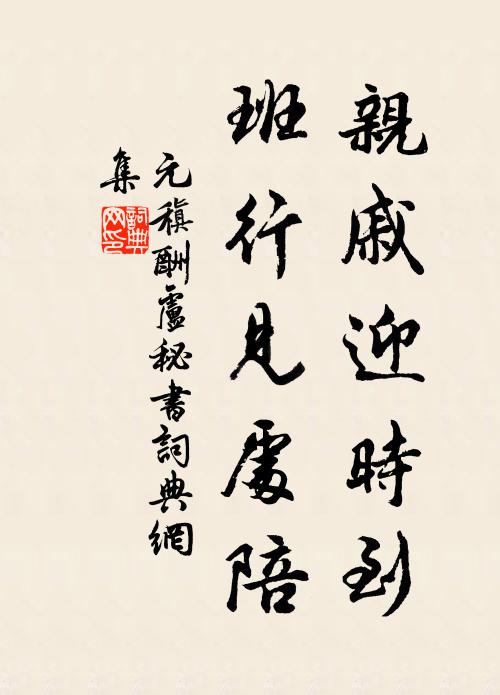 親戚迎時到
班行見處陪
元稹酬盧秘書詞典網
集
詞典
网印